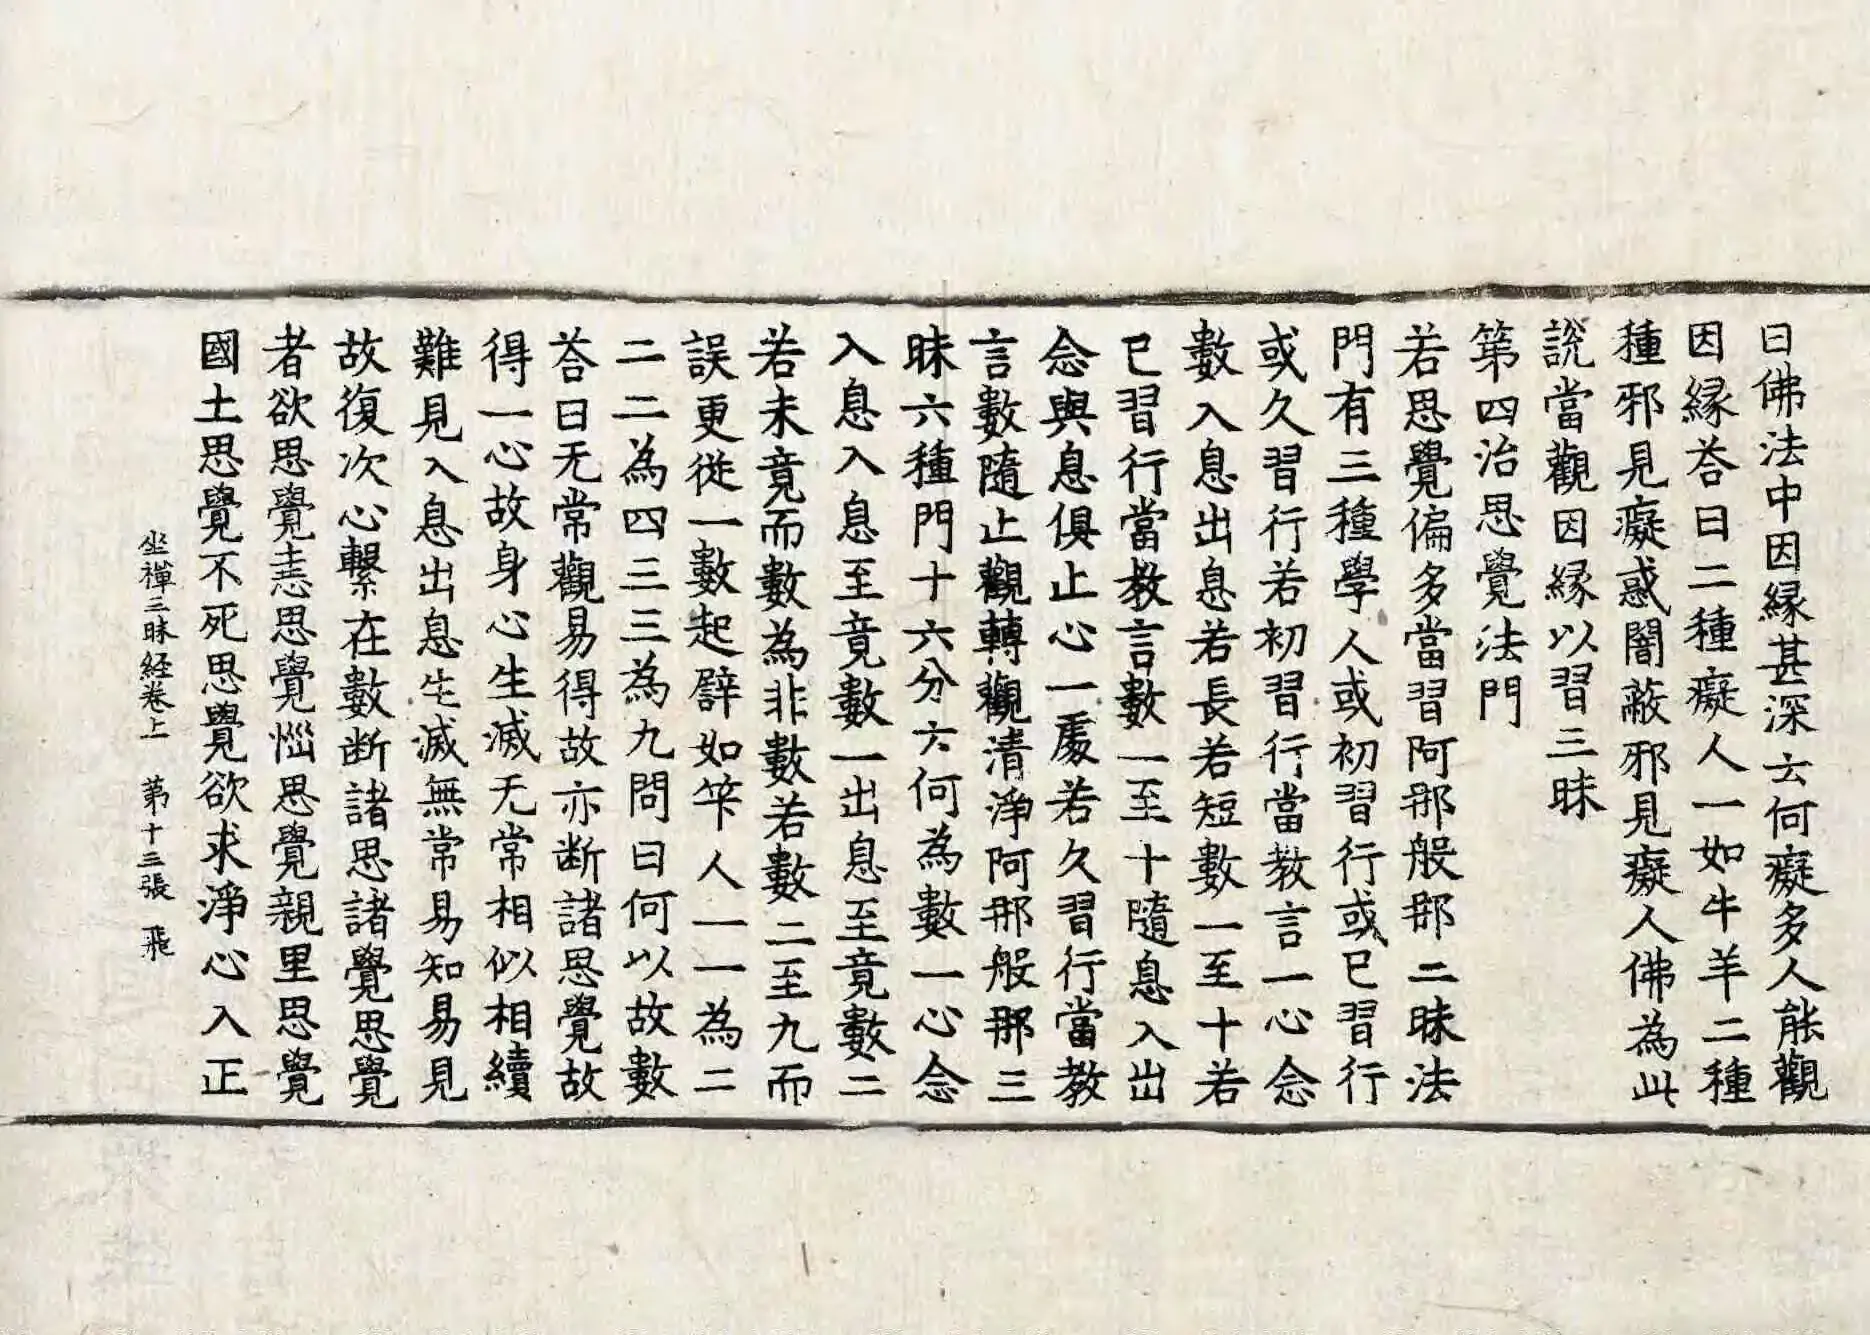 曰佛法中因縁甚深云何癡多人能觀
因縁荅曰二種癡人一如牛羊二種
種邪見癡惑闇蔽邪見癡人佛為此
說當觀因縁以習三昧
第四治思覺法門
若思覺偏多當習阿那般那三昧法
門有三種學人或初習行或已習行
或久習行若初習行當教言一心念
數入息出息若長若短數一至十若
已習行當教言數一至十隨息入出
念與息俱止心一處若久習行當教
言數隨止觀轉觀清淨阿那般那三
昧六種門十六分云何為數一心念
入息入息至竟數一出息至竟數二
若未竟而數為非數若數二至九而
誤更從一數起譬如筭人一一為二
二二為四三三為九問曰何以故數
荅曰无常觀易得故亦断諸思覺故
得一心故身心生滅无常相似相續
難見入息出息生滅無常易知易見
故復次心繫在數断諸思諸覺思覺
者欲思覺恚思覺惱思覺親里思覺
國土思覺不死思覺欲求淨心入正
坐禪三昧経卷上　第十三張　飛